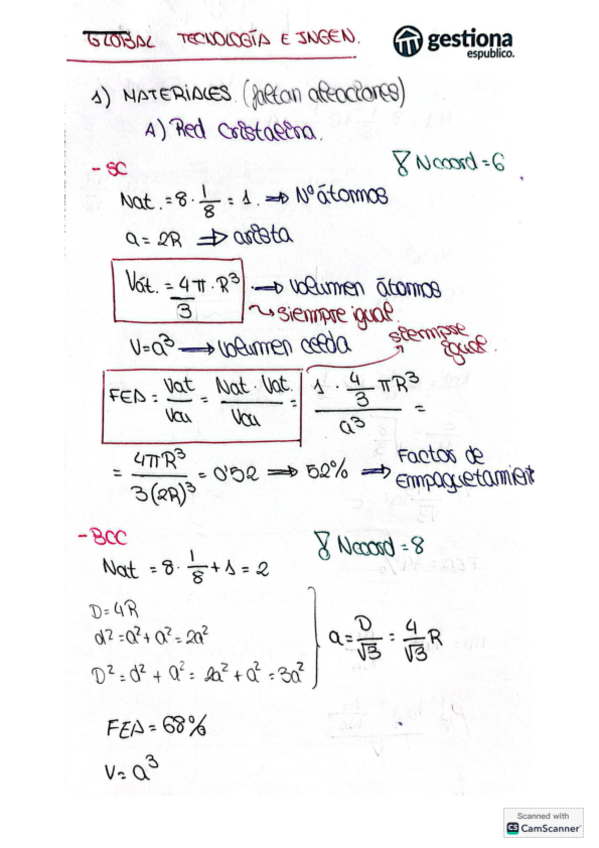 GLOBAL TECNOLOGÍA E INGEN.
gestiona
espublico.
1) MATERIALES. (faltan aleaciones)
A) Red Cristalina.
- SC
Ncoord = 6
Nat. = 8 · 1/8 = 1. ⇒ Nº átomos
a = 2R ⇒ arista
Vát. = 4π · R³ / 3 → volumen átomos
↳ siempre igual.
V = a³ → volumen celda
siempre igual.
FEA = Vat/Vcu = Nat · Vat./Vcu = 1 · 4/3 πR³ / a³ =
= 4πR³ / 3(2R)³ = 0'52 ⇒ 52% ⇒ Factor de
empaquetamient
- BCC
Ncoord = 8
Nat = 8 · 1/8 + 1 = 2
D = 4R
d² = a² + a² = 2a²
a = D/√3 = 4/√3 R
D² = d² + a² = 2a² + a² = 3a²
FEA = 68%
V = a³
Scanned with
CS CamScanner